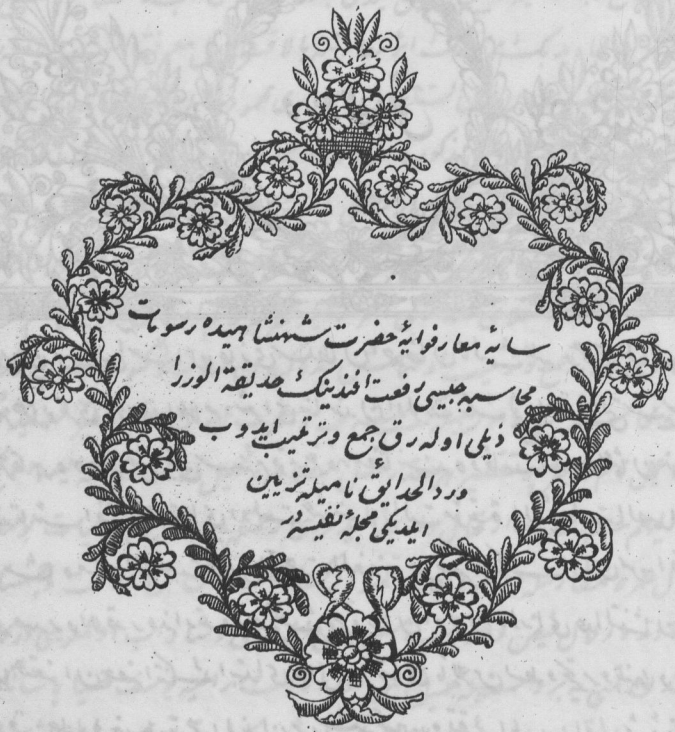 سایهٔ معارفوایهٔ حضرت شهنشاهیده رسومات
محاسبه جیسی رفعت افندینك حدیقة الوزرا
ذیلی اوله رق جمع و ترتیب ایدوب
ورد الحدایق نامیله تزیین
ایلدیکی مجلهٔ نفیسه در